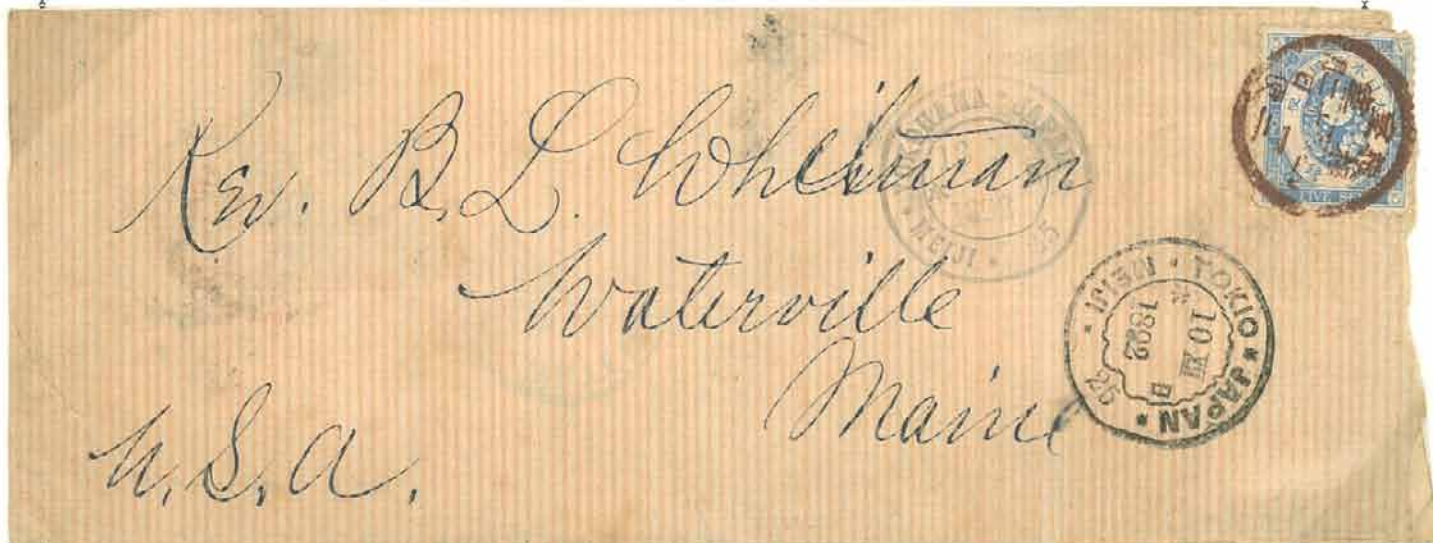 Rev. B. L. Whitman
Waterville
Maine
U. S. A.
YOKOHAMA * JAPAN
* MEIJI * 25
TOKIO * JAPAN * 25 * MEIJI *
10 XII
1892
FIVE SEN